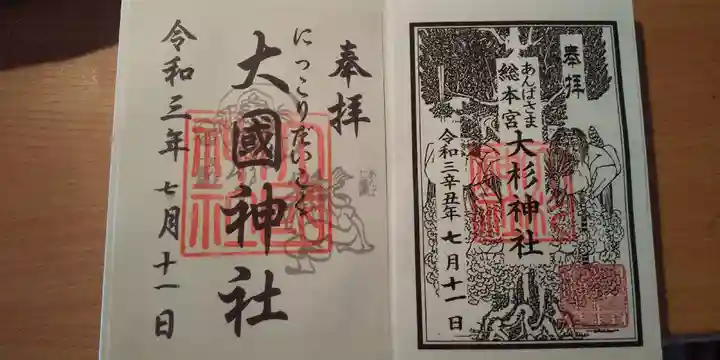 奉拝
あんばさま
総本宮
大杉神社
令和三辛丑年 七月十一日
奉拝
にっこりだいこく
大國神社
令和三年 七月十一日